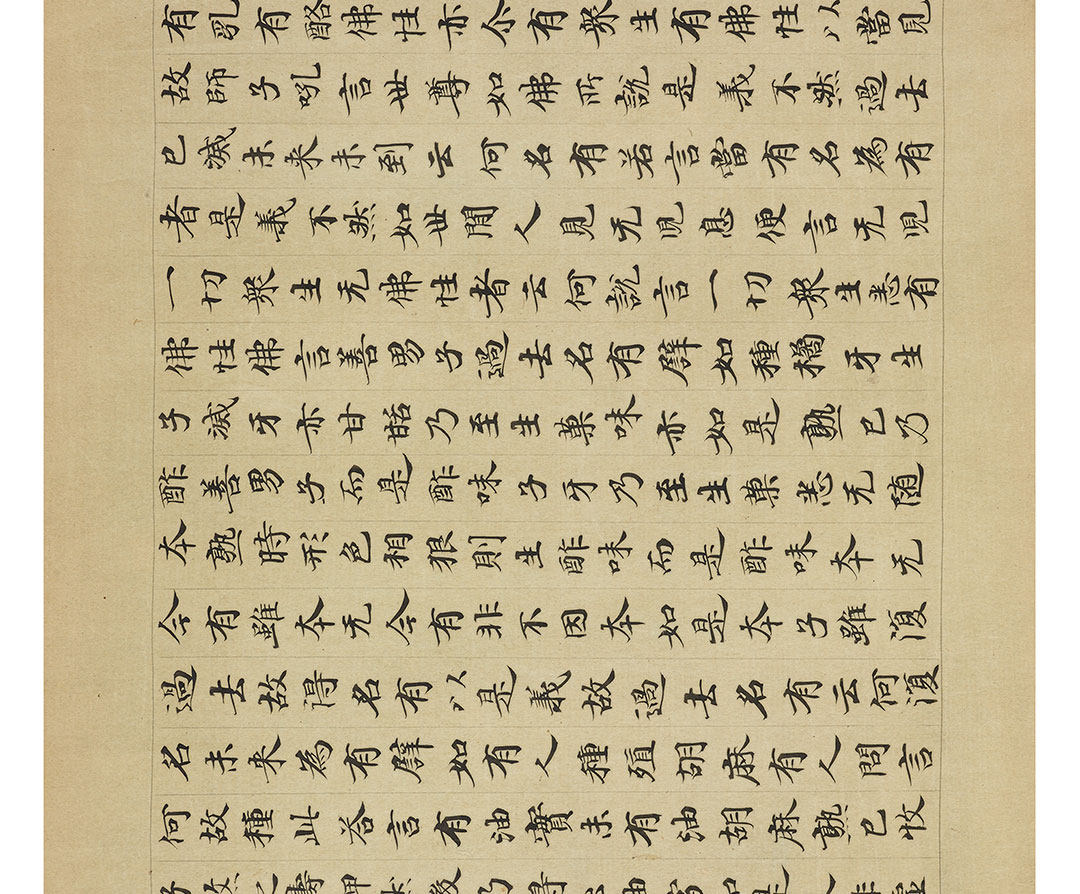 有乳有酪佛性亦尒有衆生有佛性以當見
故師子吼言世尊如佛所說是義不然過去
已滅未来未到云何名有若言當有名為有
者是義不然如世間人見无兒息便言无兒
一切衆生无佛性者云何說言一切衆生悉有
佛性佛言善男子過去名有譬如種橘牙生
子滅牙亦甘甛乃至生菓味亦如是熟已乃
酢善男子而是酢味子牙乃至生菓悉无随
本熟時形色相狠則生酢味而是酢味本无
今有雖本无今有非不因本如是本子雖復
過去故得名有以是義故過去名有云何復
名未来為有譬如有人種殖胡麻有人問言
何故種此答言有油實未有油胡麻熟已收